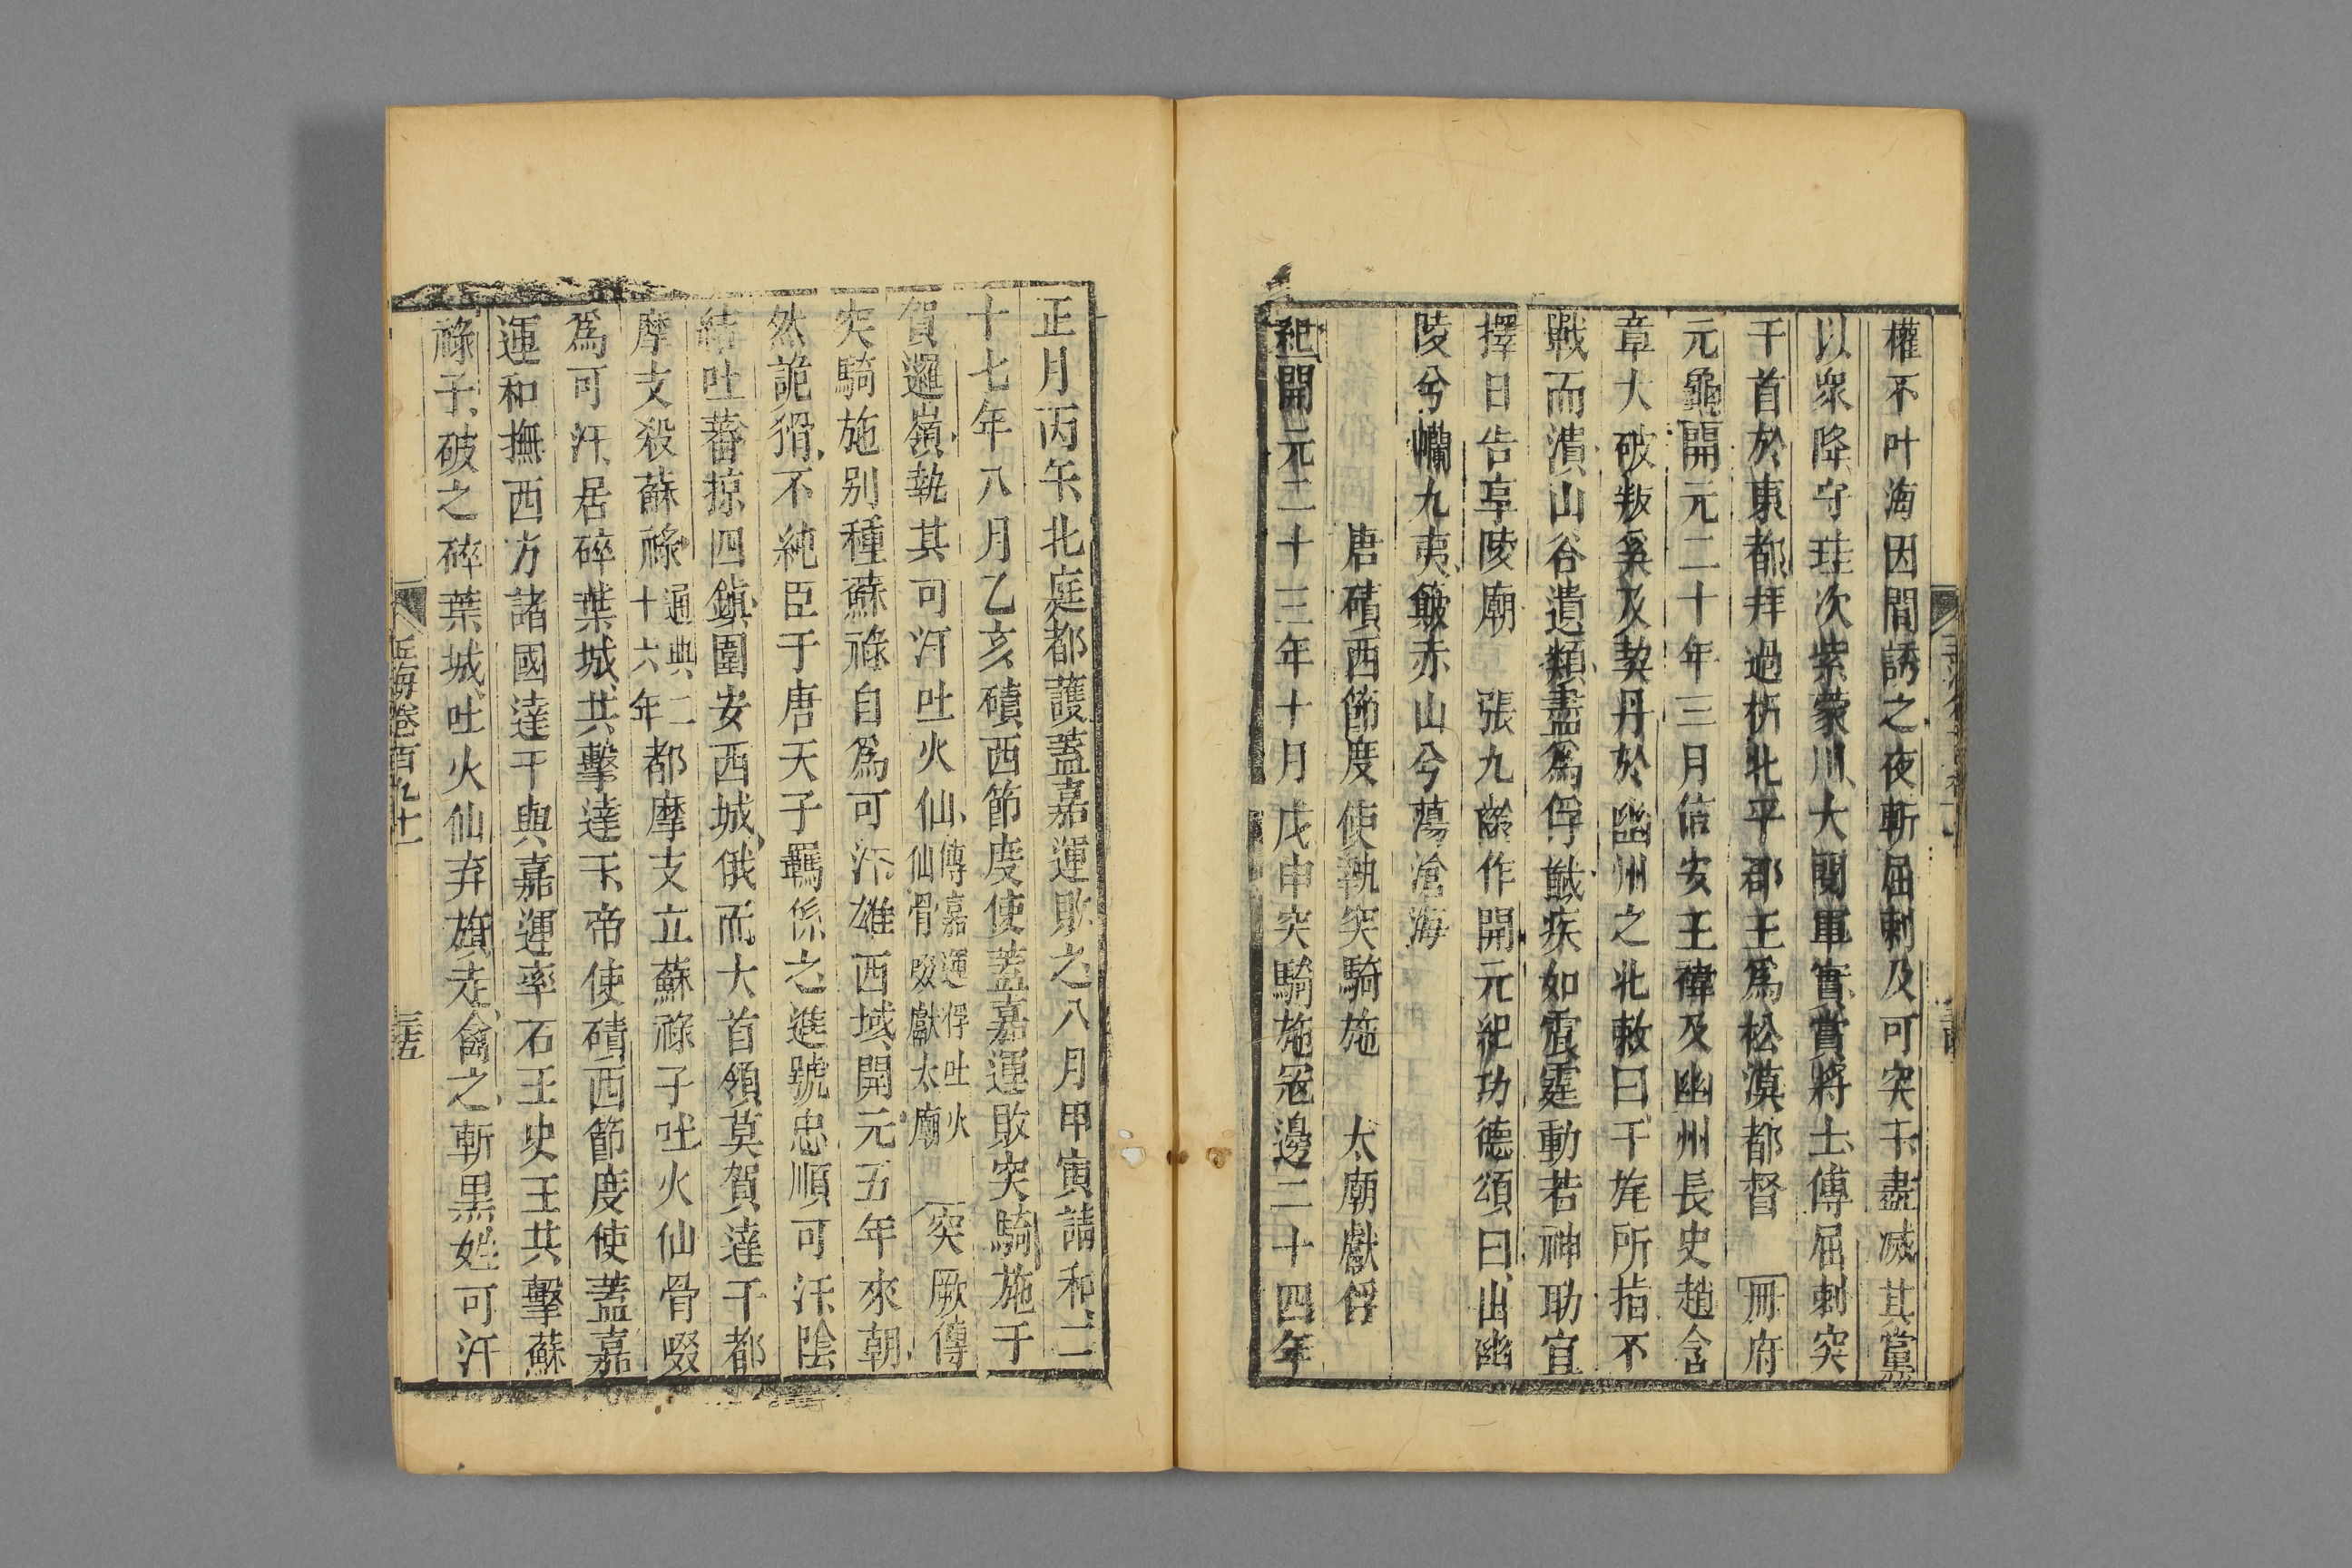 權不叶海因間誘之夜斬屈剌及可突干盡滅其黨
以衆降守珪次紫蒙川大閱軍實賞將士傳屈剌突
干首於東都拜過折北平郡王爲松漠都督 冊府
元龜開元二十年三月信安王禕及幽州長史趙含
章大破叛奚及契丹於幽州之北敕曰干旄所指不
戰而潰山谷遺類盡爲俘馘疾如震霆動若神助宜
擇日告享陵廟 張九齡作開元紀功德頌曰出幽
陵兮 九夷 赤山兮蕩滄海
唐磧西節度使執突騎施 太廟獻俘
紀開元二十三年十月戊申突騎施寇邊二十四年
正月丙午北庭都護蓋嘉運敗之八月甲寅請和二
十七年八月乙亥磧西節度使蓋嘉運敗突騎施于
賀邏嶺執其可汗吐火仙傳嘉運俘吐火仙骨啜獻太廟 突厥傳
突騎施别種蘇祿自爲可汗雄西域開元五年來朝
然詭猾不純臣于唐天子羈係之進號忠順可汗陰
結吐蕃掠四鎮圍安西城俄而大首領莫賀達干都
摩支殺蘇祿通典二十六年都摩支立蘇祿子吐火仙骨啜
爲可汗居碎葉城共擊達干帝使磧西節度使蓋嘉
運和撫西方諸國達干與嘉運率石王史王共擊蘇
祿子破之碎葉城吐火仙弃旗走禽之斬黒姓可汗
玉海卷百九十一
三十五